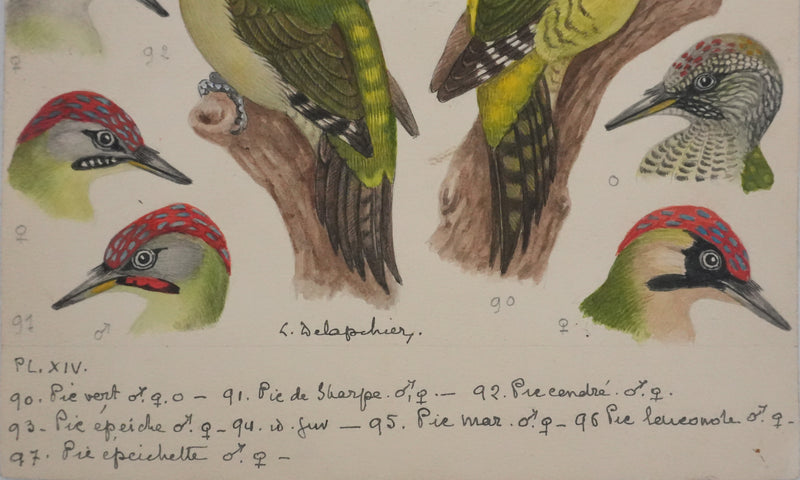 ♀
92
♀
91
♂
O
90
♀
L. Delapchier.
PL. XIV.
90. Pic vert ♂. ♀. O — 91. Pic de Sharpe. ♂, ♀. — 92. Pic cendré. ♂. ♀.
93 - Pic épeiche ♂. ♀ - 94. id. juv — 95. Pic mar. ♂. ♀ - 96 Pic leuconote ♂. ♀ -
97. Pic épeichette ♂. ♀ -